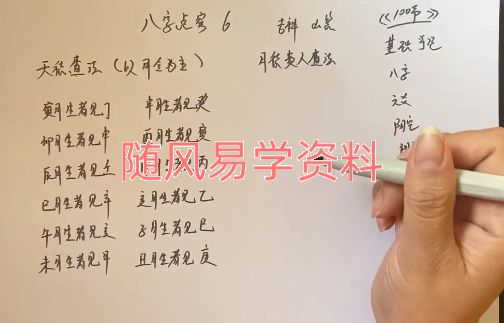 八字点窍 6
吉祥
《100节》
天德查法（以月令为主）
月德贵人查法
基础
寅月生者见丁
八字
卯月生者见申
酉月生者见寅
六爻
辰月生者见壬
月生者见丙
阴宅
巳月生者见辛
亥月生者见乙
午月生者见亥
子月生者见巳
未月生者见甲
丑月生者见庚
随风易学资料